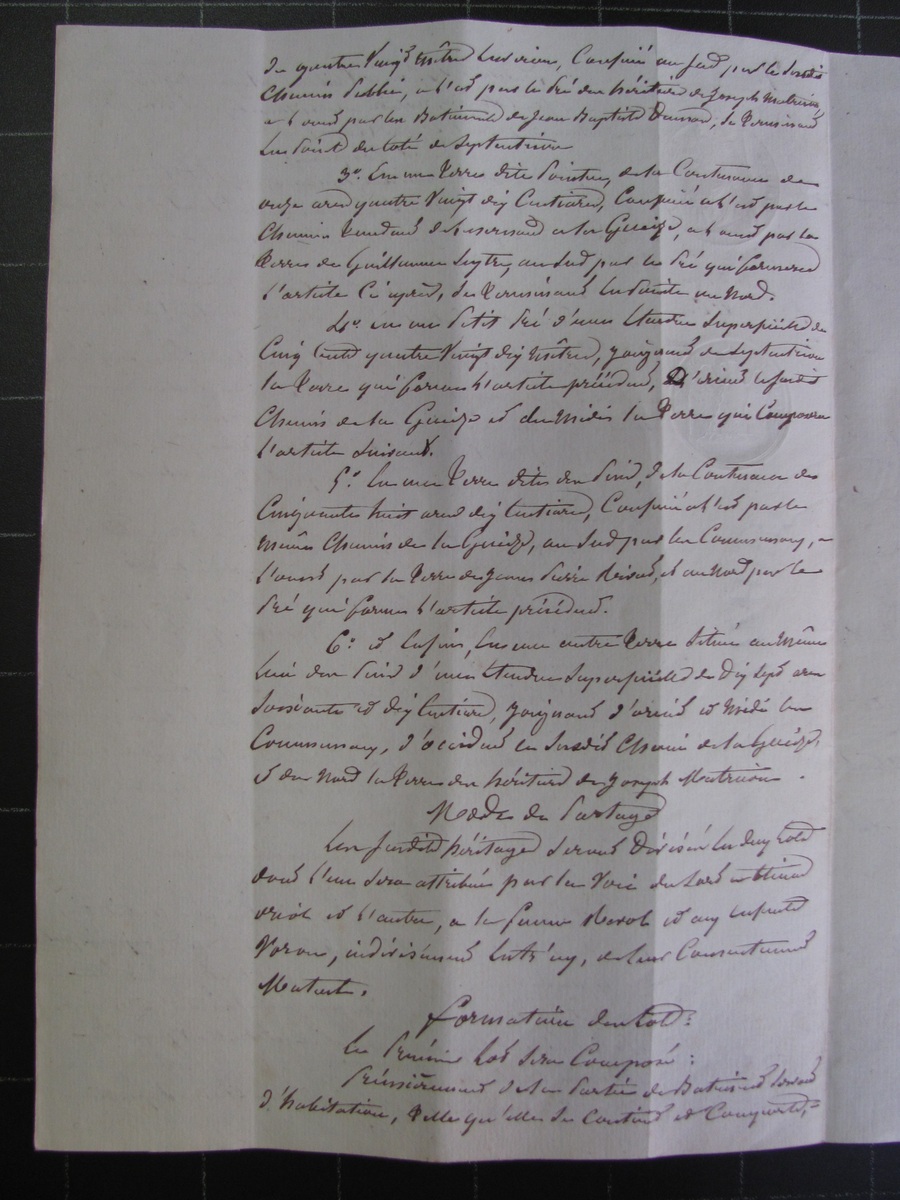 de quatre Vingt mêtres Environ, Confiné au Sud par le Susdit
Chemin Public, a l'est par le Pré des héritiers de Joseph
a l'ouest par les Batiments de Jean Baptiste se Terminant
En Pointe du Coté de Septentrion
3°. En une Terre dite Pointue, de la Contenance de
onze ares quatre Vingt dix Centiares, Confinée a l'est par le
Chemin Tendant de a la a l'ouest par la
Terre de Guillaume au Sud par le Pré qui formera
l'article Ci après, Se Terminant En Pointe au Nord.
4°. en un Petit Pré d'une Etendue Superficielle de
Cinq Cent quatre Vingt dix Mêtres, joignant de Septentrion
la Terre qui forme l'article précédent, D'orient le susdit
Chemin de la et du Midi la Terre qui Composera
l'article Suivant.
5°. En une Terre dite de la Contenance de
Cinquante huit ares dix Centiares, Confinée a l'est par le
Même Chemin de la au Sud par les Communaux, a
l'ouest par la Terre de James Pierre et au Nord par le
Pré qui forme l'article précédent.
6°. et Enfin, En une autre Terre Située au Même
Lieu d'une Etendue Superficielle de Dix Sept ares
Soixante et dix Centiares, joignant d'orient et Midi les
Communaux, d'occident le Susdit Chemin de la
& du Nord la Terre des héritiers de Joseph
Mode de Partage
Les Susdits héritages Seront Divisés En deux Lots
dont l'un Sera attribué par la Voie du Sort
et l'autre, a la femme et aux Enfants
indivisément Entr'eux, de leur Consentement
Mutuel.
Formation des Lots:
Le Premier Lot Sera Composé:
Premièrement de la Partie de Batiment Servant
d'habitation, Telle qu'elle Se Contient et Comporte,